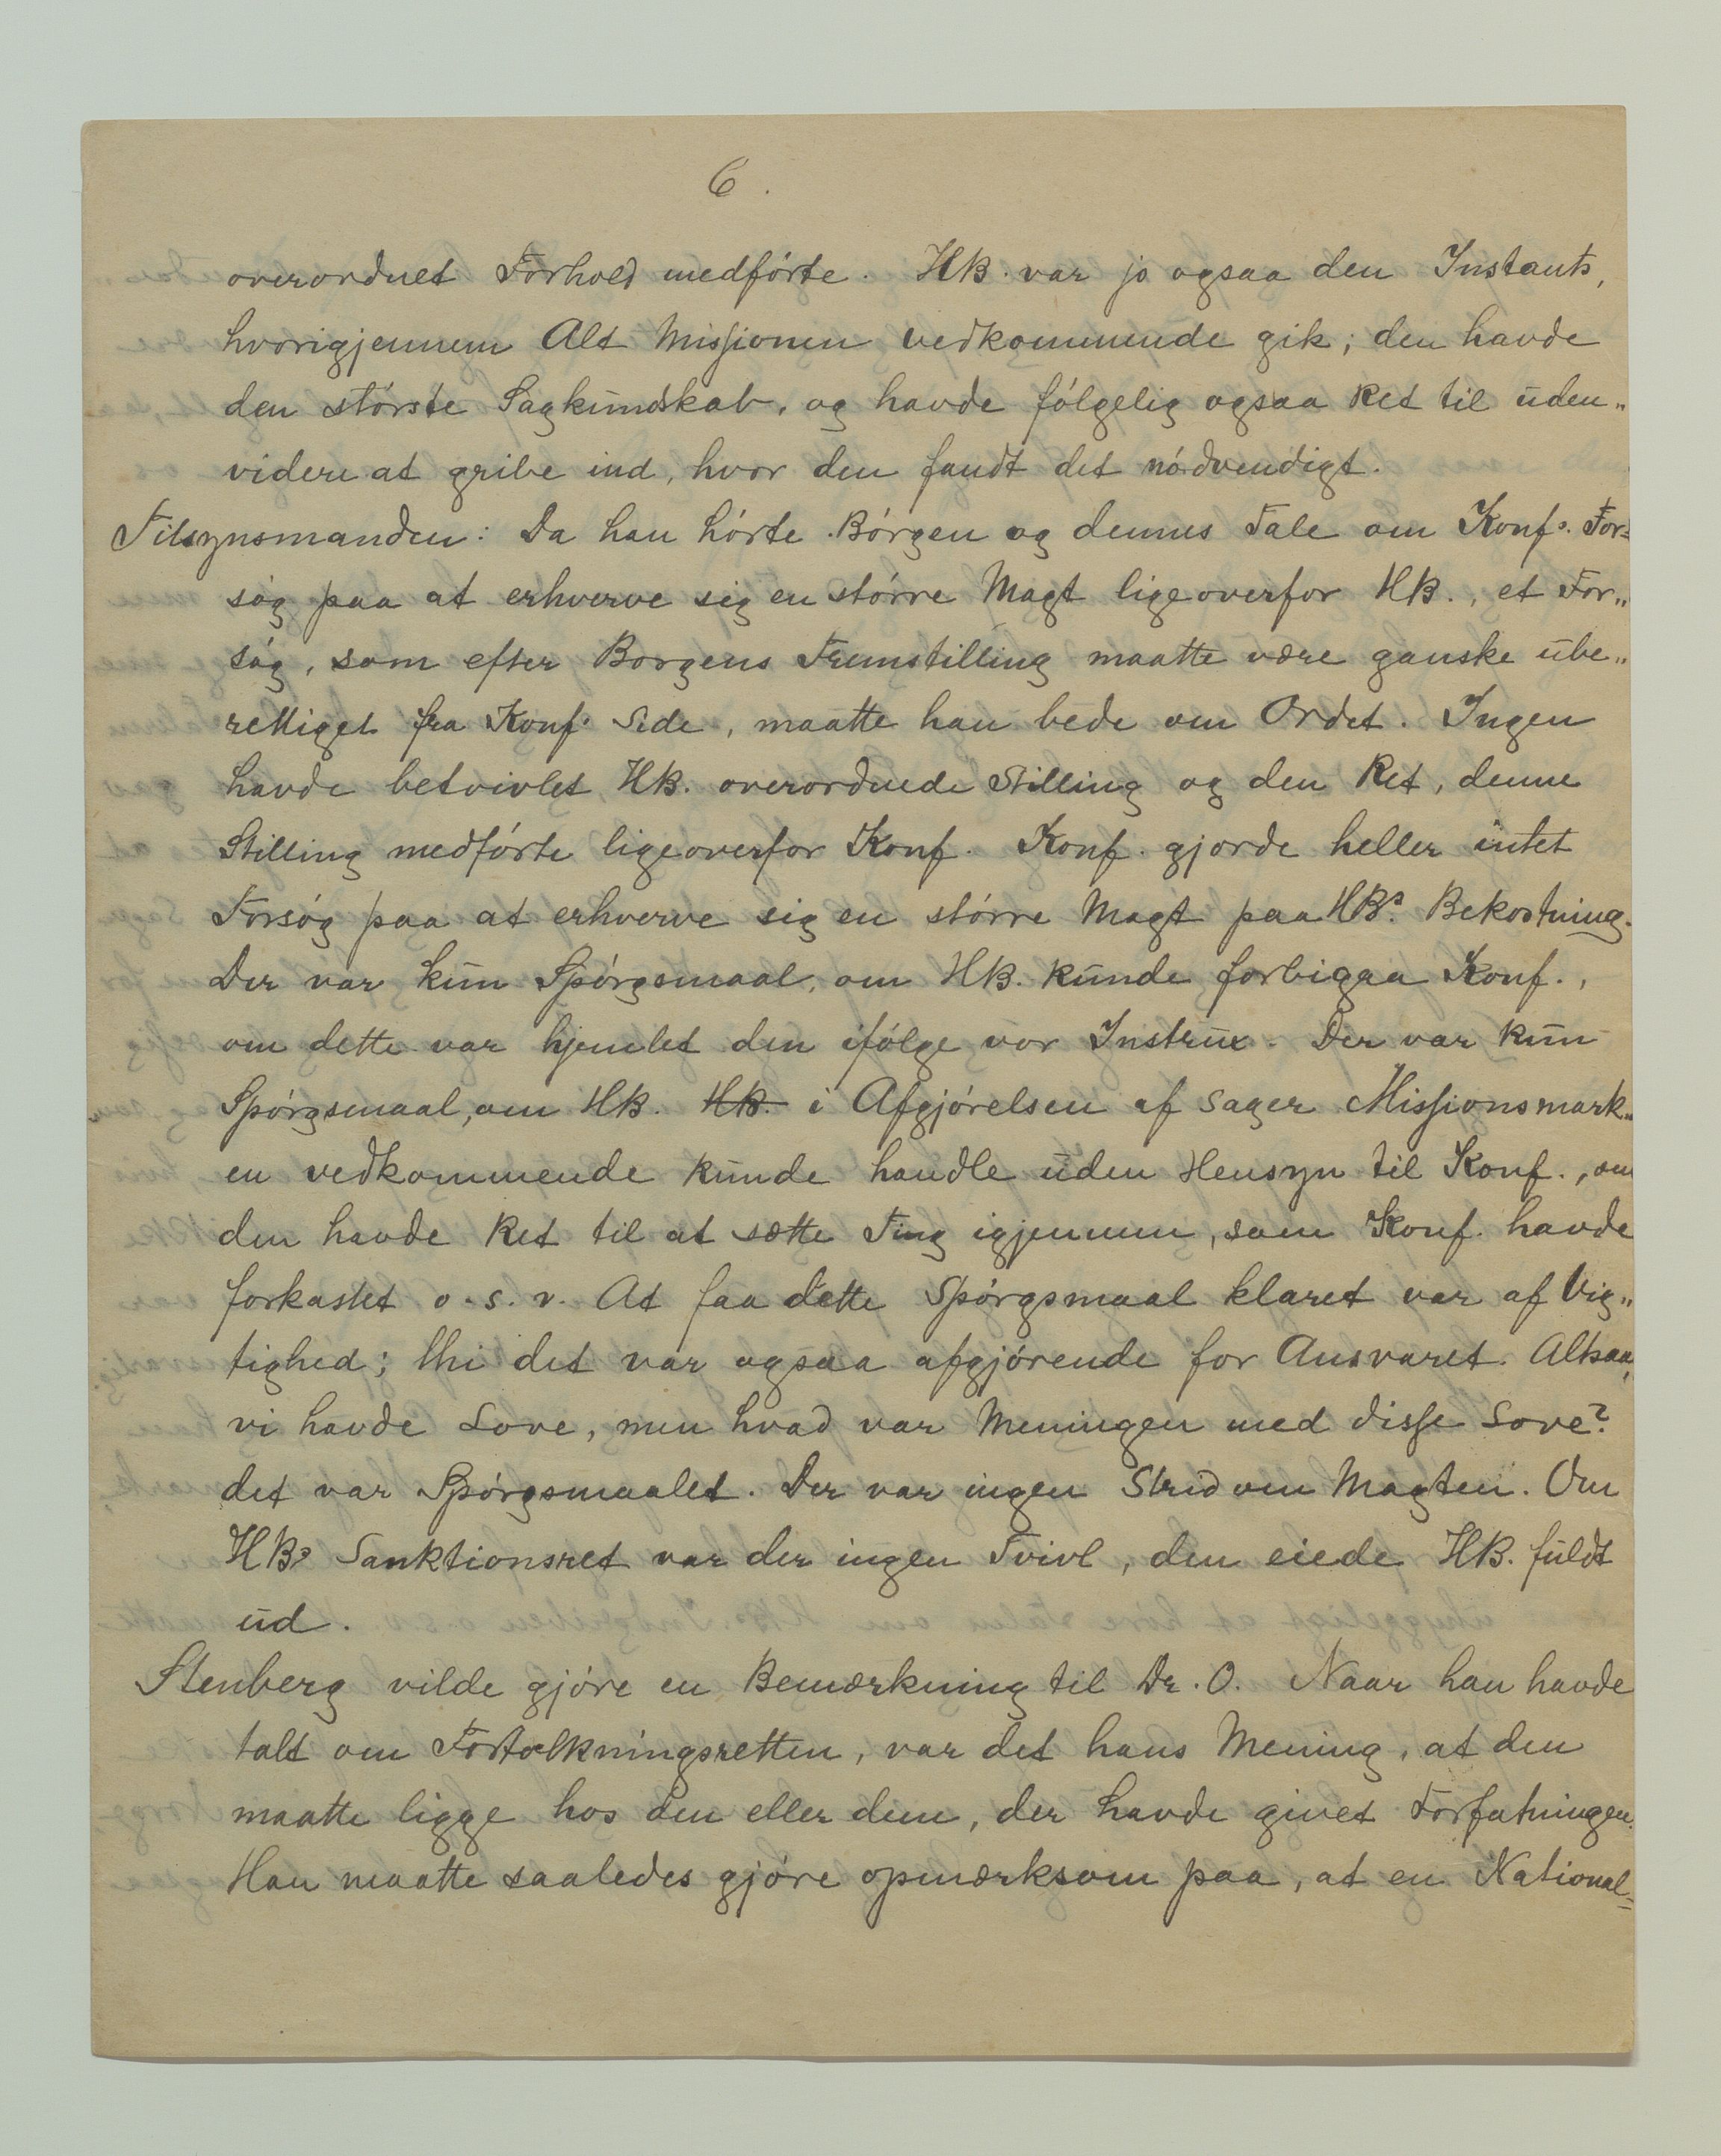 6.
overordnet Forhold medførte. HB. var jo ogsaa den Instants,
hvorigjennem Alt Missionen vedkommende gik; den havde
den største Sagkundskab, og havde følgelig ogsaa Ret til uden„
videre at gribe ind, hvor den fandt det nødvendigt.
Tilsynsmanden: Da han hørte Børgen og dennes Tale om Konfs. For=
søg paa at erhverve sig en større Magt ligeoverfor HB., et For„
søg, som efter Borgens Fremstilling maatte være ganske ube„
rettiget fra Konf. Side, maatte han bede om Ordet. Ingen
havde betvivlet HB. overordnede Stilling og den Ret, denne
Stilling medførte ligeoverfor Konf. Konf. gjorde heller intet
Forsøg paa at erhverve sig en større Magt paa HBs. Bekostning.
Der var kun Spørgsmaal, om HB. kunde forbigaa Konf.,
om dette var hjemlet den ifølge vor Instrux. Der var kun
Spørgsmaal, om HB. HB. i Afgjørelsen af Sager Missionsmark„
en vedkommende kunde handle uden Hensyn til Konf., om
den havde Ret til at sætte Ting igjennem, som Konf. havde
forkastet o.s.v. At faa dette Spørgsmaal klaret var af Vig„
tighed; thi det var ogsaa afgjørende for Ansvaret. Altsaa,
vi havde Love, men hvad var Meningen med disse Love?
det var Spørgsmaalet. Der var ingen Strid om Magten. Om
HBs Sanktionsret var der ingen Tvivl, den eiede HB. fuldt
ud.
Stenberg vilde gjøre en Bemærkning til Dr. O. Naar han havde
talt om Fortolkningsretten, var det hans Mening, at den
maatte ligge hos den eller dem, der havde givet Forfatningen.
Han maatte saaledes gjøre opmærksom paa, at en National=